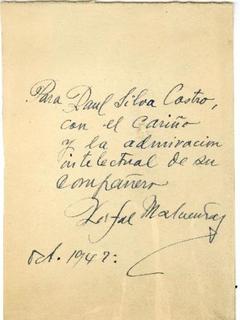 Para Raul Silva Castro,
con el cariño
y la admiracion
intelectual de su
compañero
Rafael Maluenda
Oct. 1947.